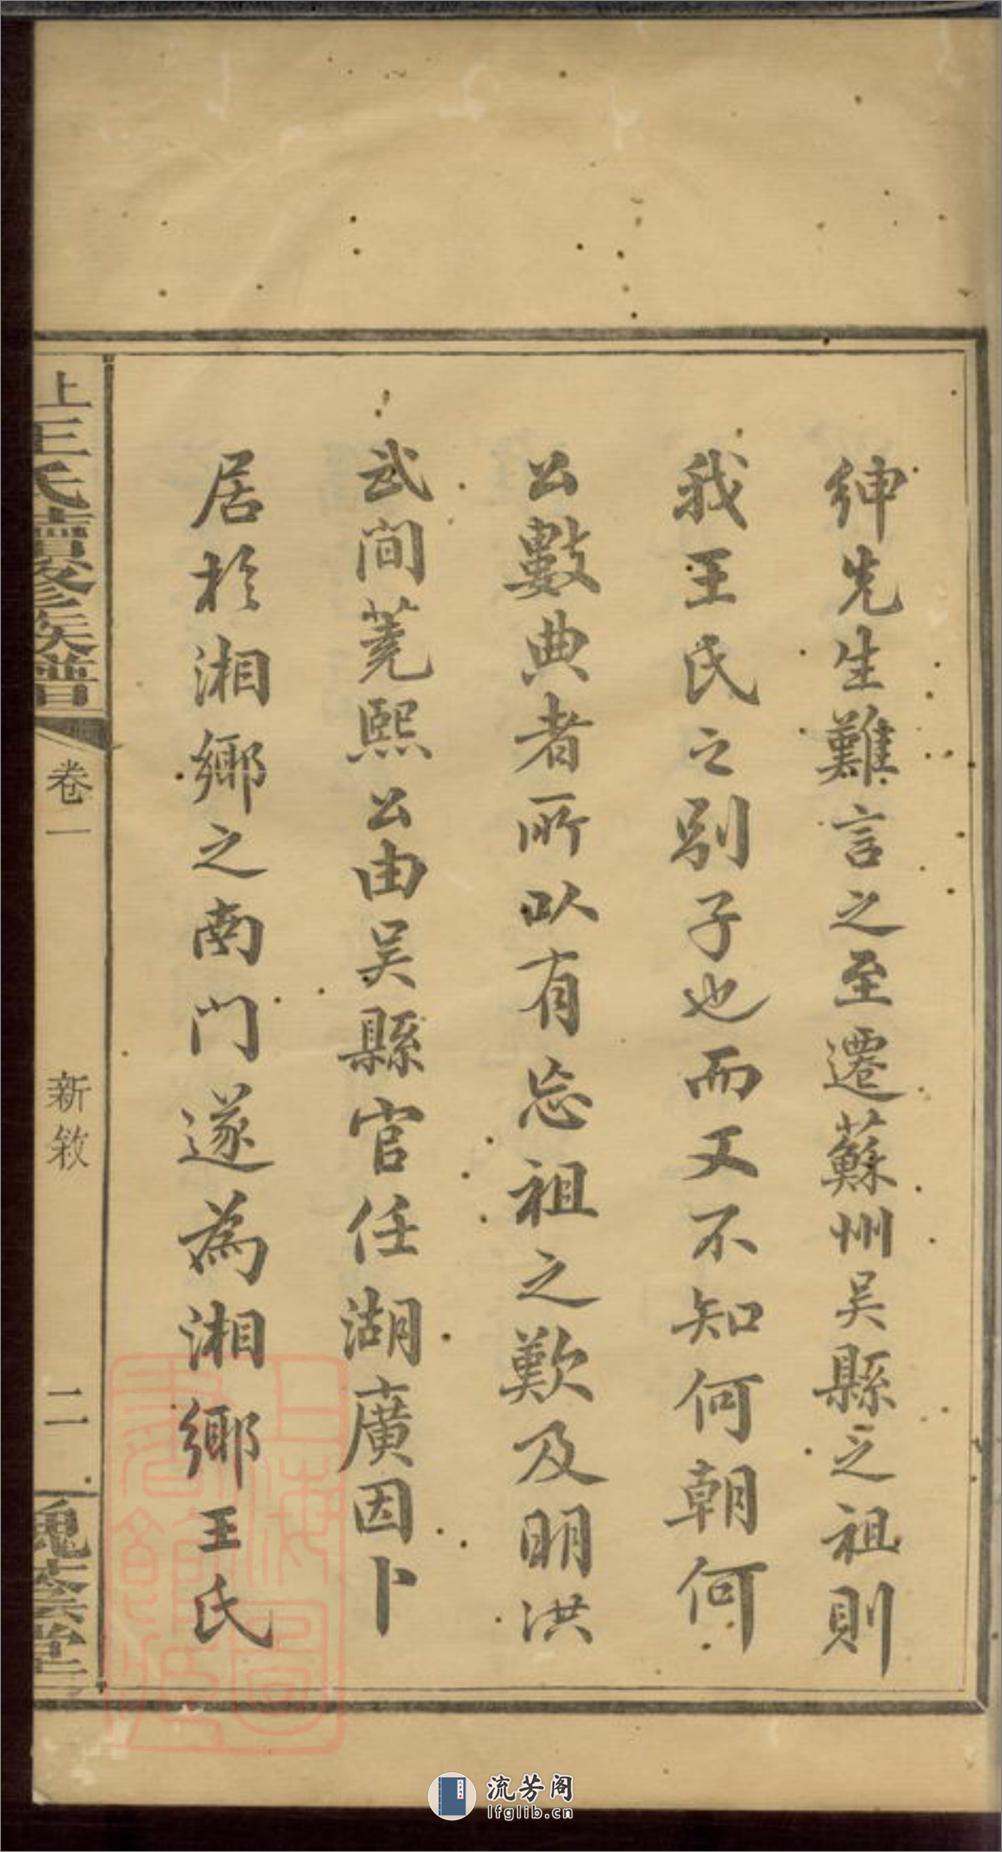 紳先生難言之至遷蘇州吴縣之祖則
我王氏之别子也而又不知何朝何
公數典者所以有忘祖之歎及明洪
武间蕘熙公由吴縣官任湖廣因卜
居於湘鄉之南门遂為湘鄉王氏
上王氏續修族譜
卷一
新敘
二
槐蔭堂
上海圖書館藏
流芳阁
lfglib.cn